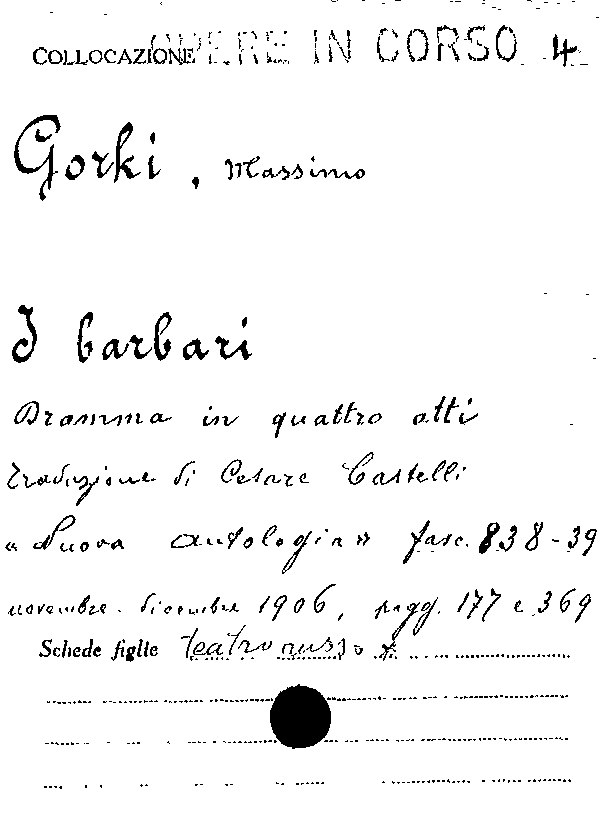 COLLOCAZIONE OPERE IN CORSO 4
Gorki, Massimo
I barbari
Dramma in quattro atti
traduzione di Cesare Castelli
«Nuova Antologia» fasc. 838-39
novembre-dicembre 1906, pagg. 177 e 369
Schede figlie teatro russo *